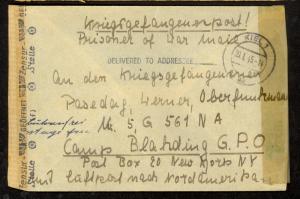 Kriegsgefangenenpost!
Prisoner of War Mail
DELIVERED TO ADDRESSEE
KIEL 1
An den Kriegsgefangenen
Pasedag, Werner,
Gebührenfrei
No. 5 G 561 NA
Camp Blanding G.P.O
Post Box 20 New York NY
mit Luftpost nach Nordamerika